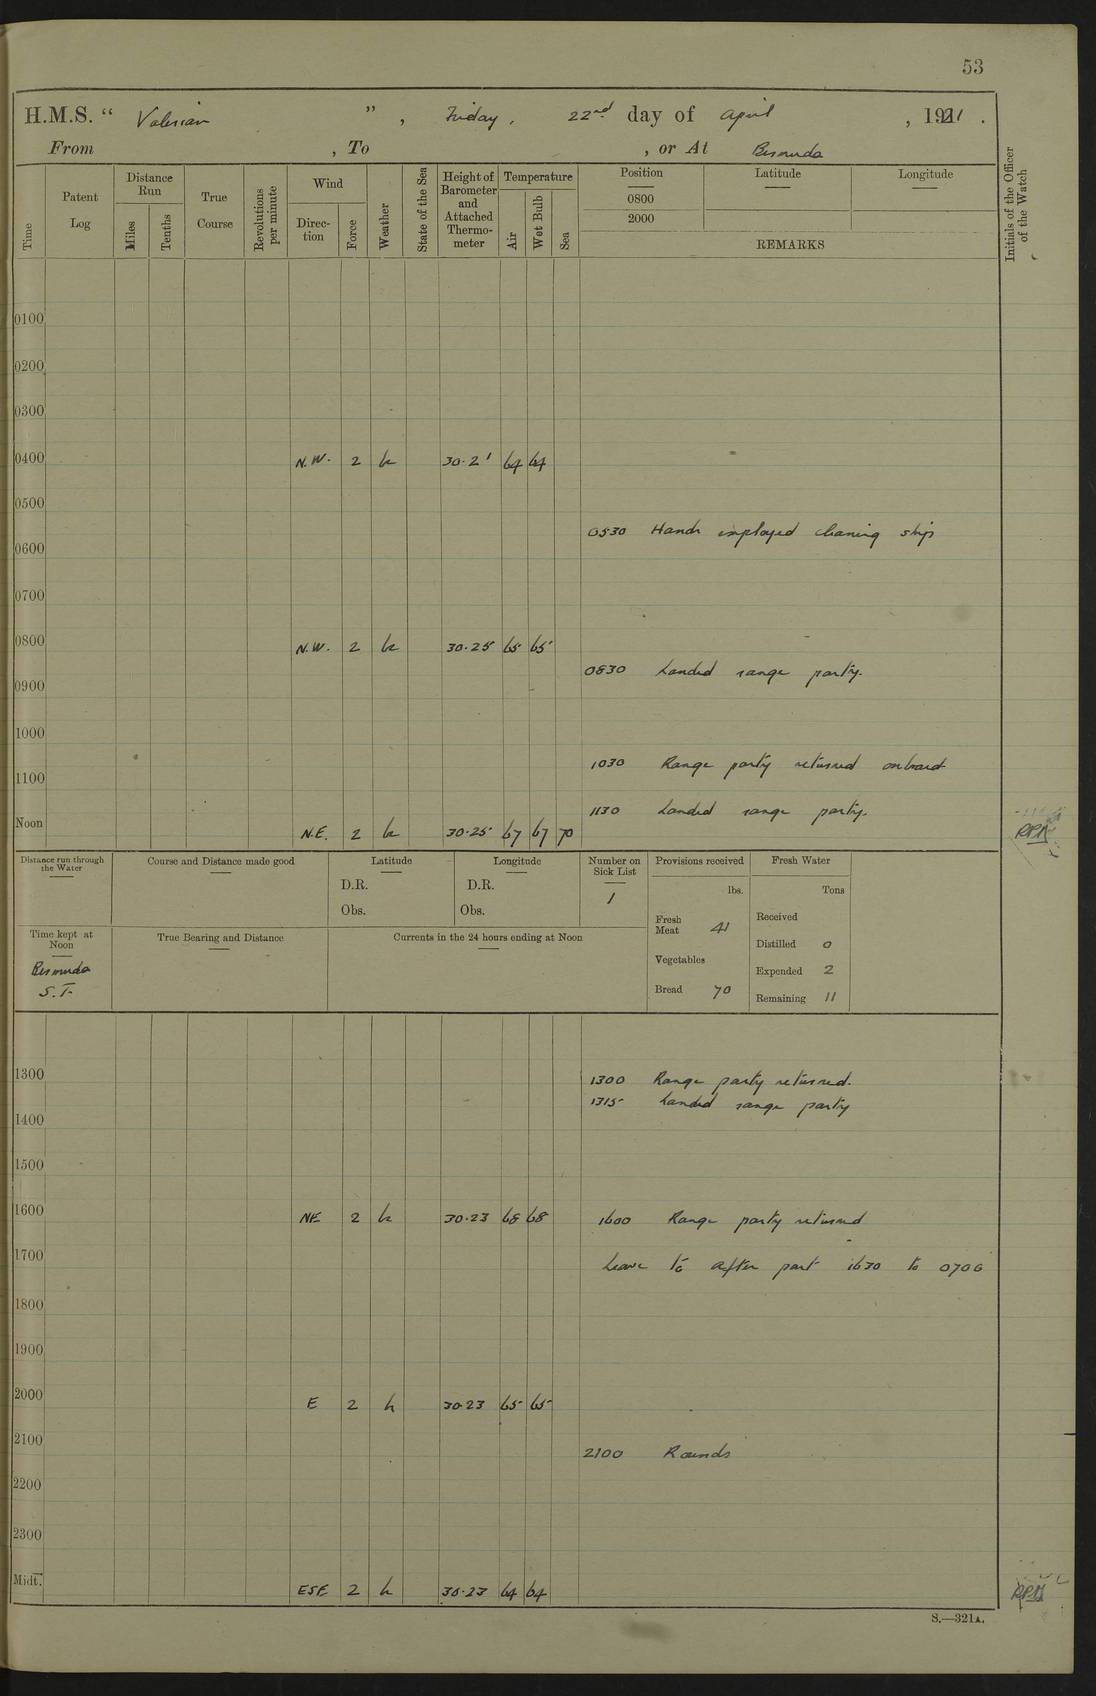 53
H.M.S. “ Valerian ” , Friday, 22nd day of April , 1921 .
From , To , or At Bermuda
Time
Patent Log
Distance Run
Miles
Tenths
True Course
Revolutions per minute
Wind
Direc-tion
Force
Weather
State of the Sea
Height of Barometer and Attached Thermo-meter
Temperature
Air
Wet Bulb
Sea
Position
0800
2000
Latitude
Longitude
REMARKS
Initials of the Officer of the Watch
0100
0200
0300
0400 N.W. 2 30·21 64 64
0500
0530 Hands employed cleaning ship
0600
0700
0800 N.W. 2 30·25 65 65
0830 Landed range party.
0900
1000
1030 Range party returned onboard
1100
1130 Landed range party.
Noon N.E. 2 30·25 67 67 70
Distance run through the Water
Course and Distance made good
Latitude
D.R.
Obs.
Longitude
D.R.
Obs.
Number on Sick List
1
Provisions received
lbs.
Fresh Meat 41
Vegetables
Bread 70
Fresh Water
Tons
Received
Distilled 0
Expended 2
Remaining 11
Time kept at Noon
Bermuda
S.T.
True Bearing and Distance
Currents in the 24 hours ending at Noon
1300
1300 Range party returned.
1315 Landed range party
1400
1500
1600 NE 2 30·23 68 68 1600 Range party returned
1700
Leave to after part 1630 to 0700
1800
1900
2000 E 2 30·23 65 65
2100
2100 Rounds
2200
2300
Midt. ESE 2 30·23 64 64
S.—321A.